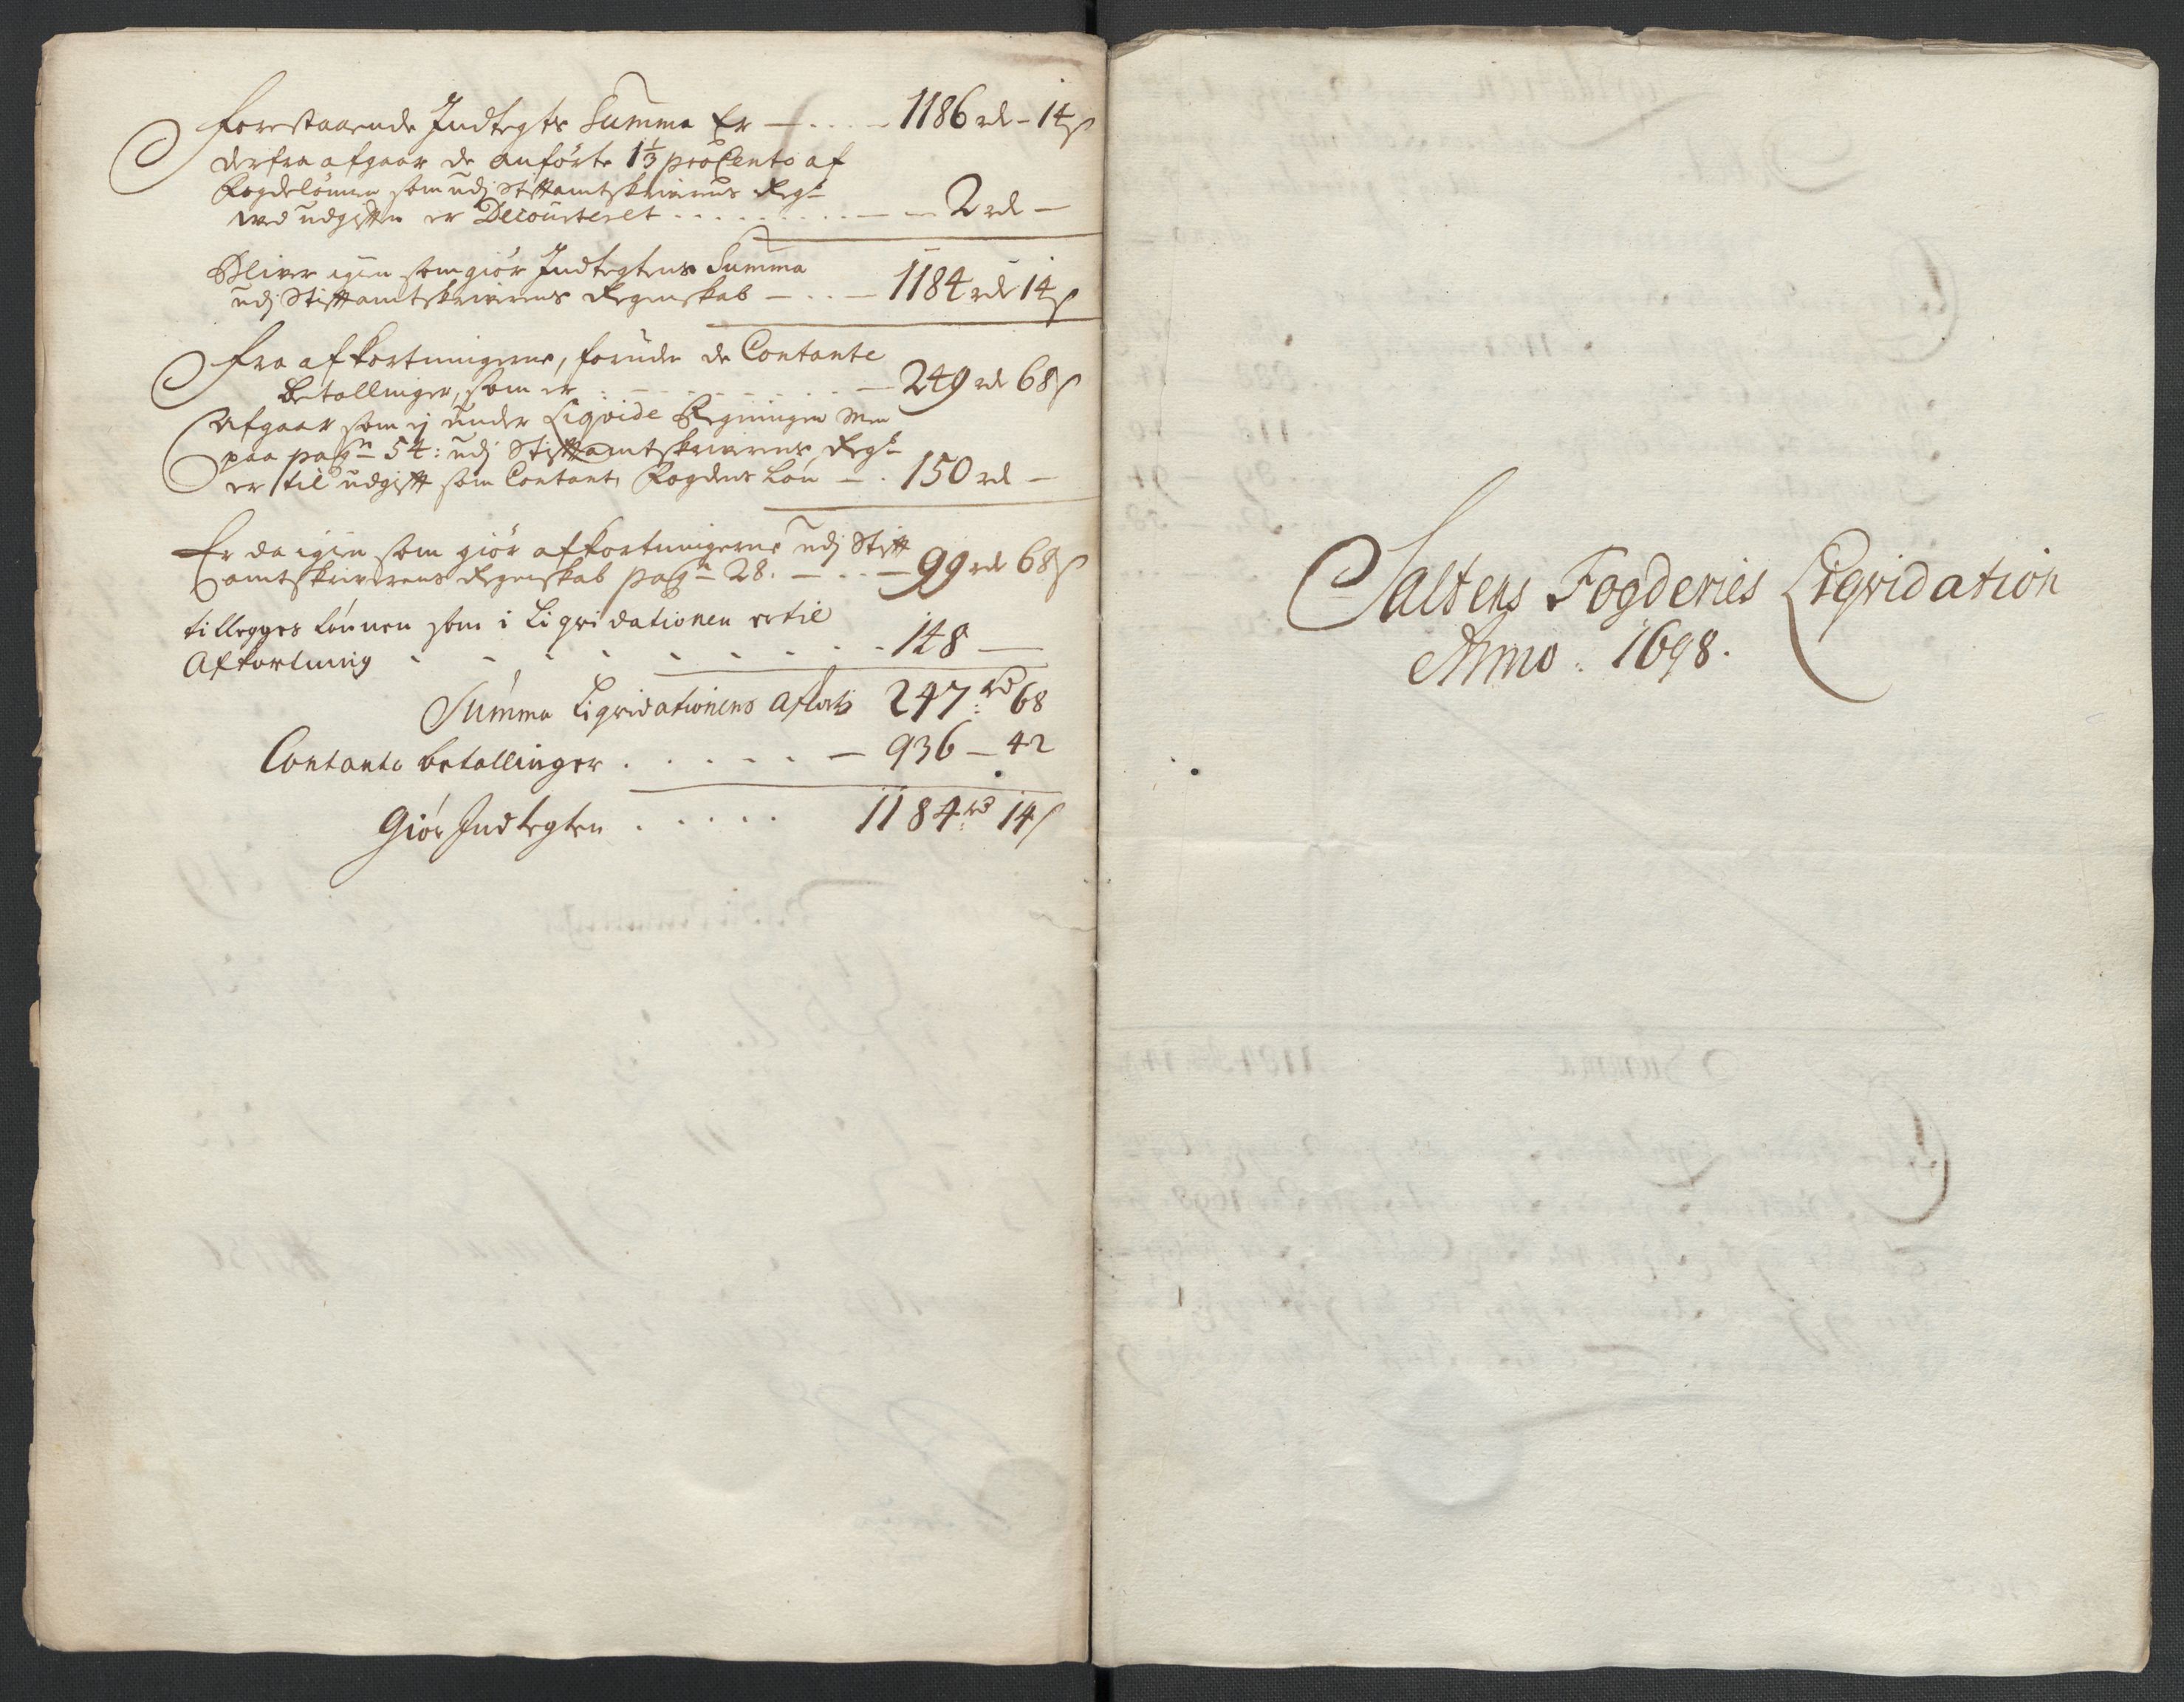 Forestaaende Indtegts Summa Er — . . . . – 1186 rdr – 14 s
derfra afgaar de anførte 1⅓ pro Cento af
Fogdelønnen som udj Stiftamtskrivrens Regsk
ved udgiften er Decourteret . . . . . . . . . — — 2 rdr —
Bliver igien som giør Indtegtens Summa
udj Stiftamtskriverens Regenskab — . . — 1184 rdr 14 s
Fra afkortningerne, foruden de Contante
betallinger, som er . — . . . . . . — 249 rdr 68 s
Afgaar som ej under Liqvide Regningen men
paa pagn 54: udj Stiftamtskriverens Regsk
er til udgift som Contant, Fogdens Løn — . 150 rdr —
Er da igien som giør afkortningerne udj Stift
amtskriverens Regenskab pagn 28. — . . — 99 rdr 68 s
tillegges Lønnen som i Liqvidationen er til
Afkortning . . . . . . . . . 148 —
Summa Liqvidationens Afkort: 247 rd 68
Contante betallinger . . . . . . — 936 — 42
Giør Indtegten . . . . . 1184 rd 14 s
Saltens Fogderies Liqvidation
Anno : 1698.